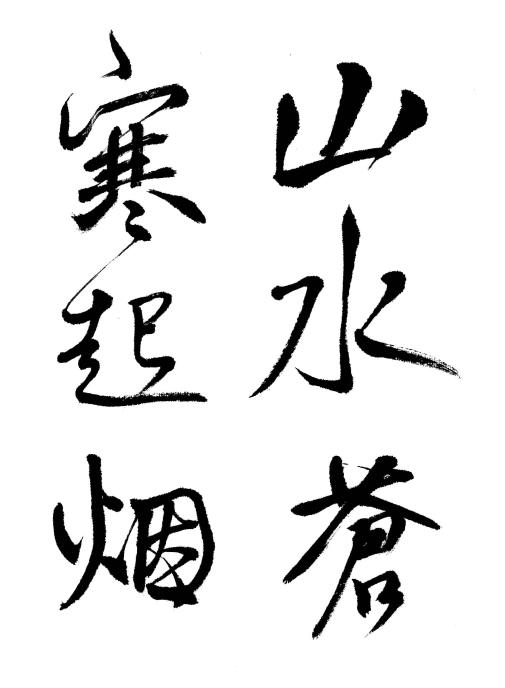 山水蒼
寒起烟